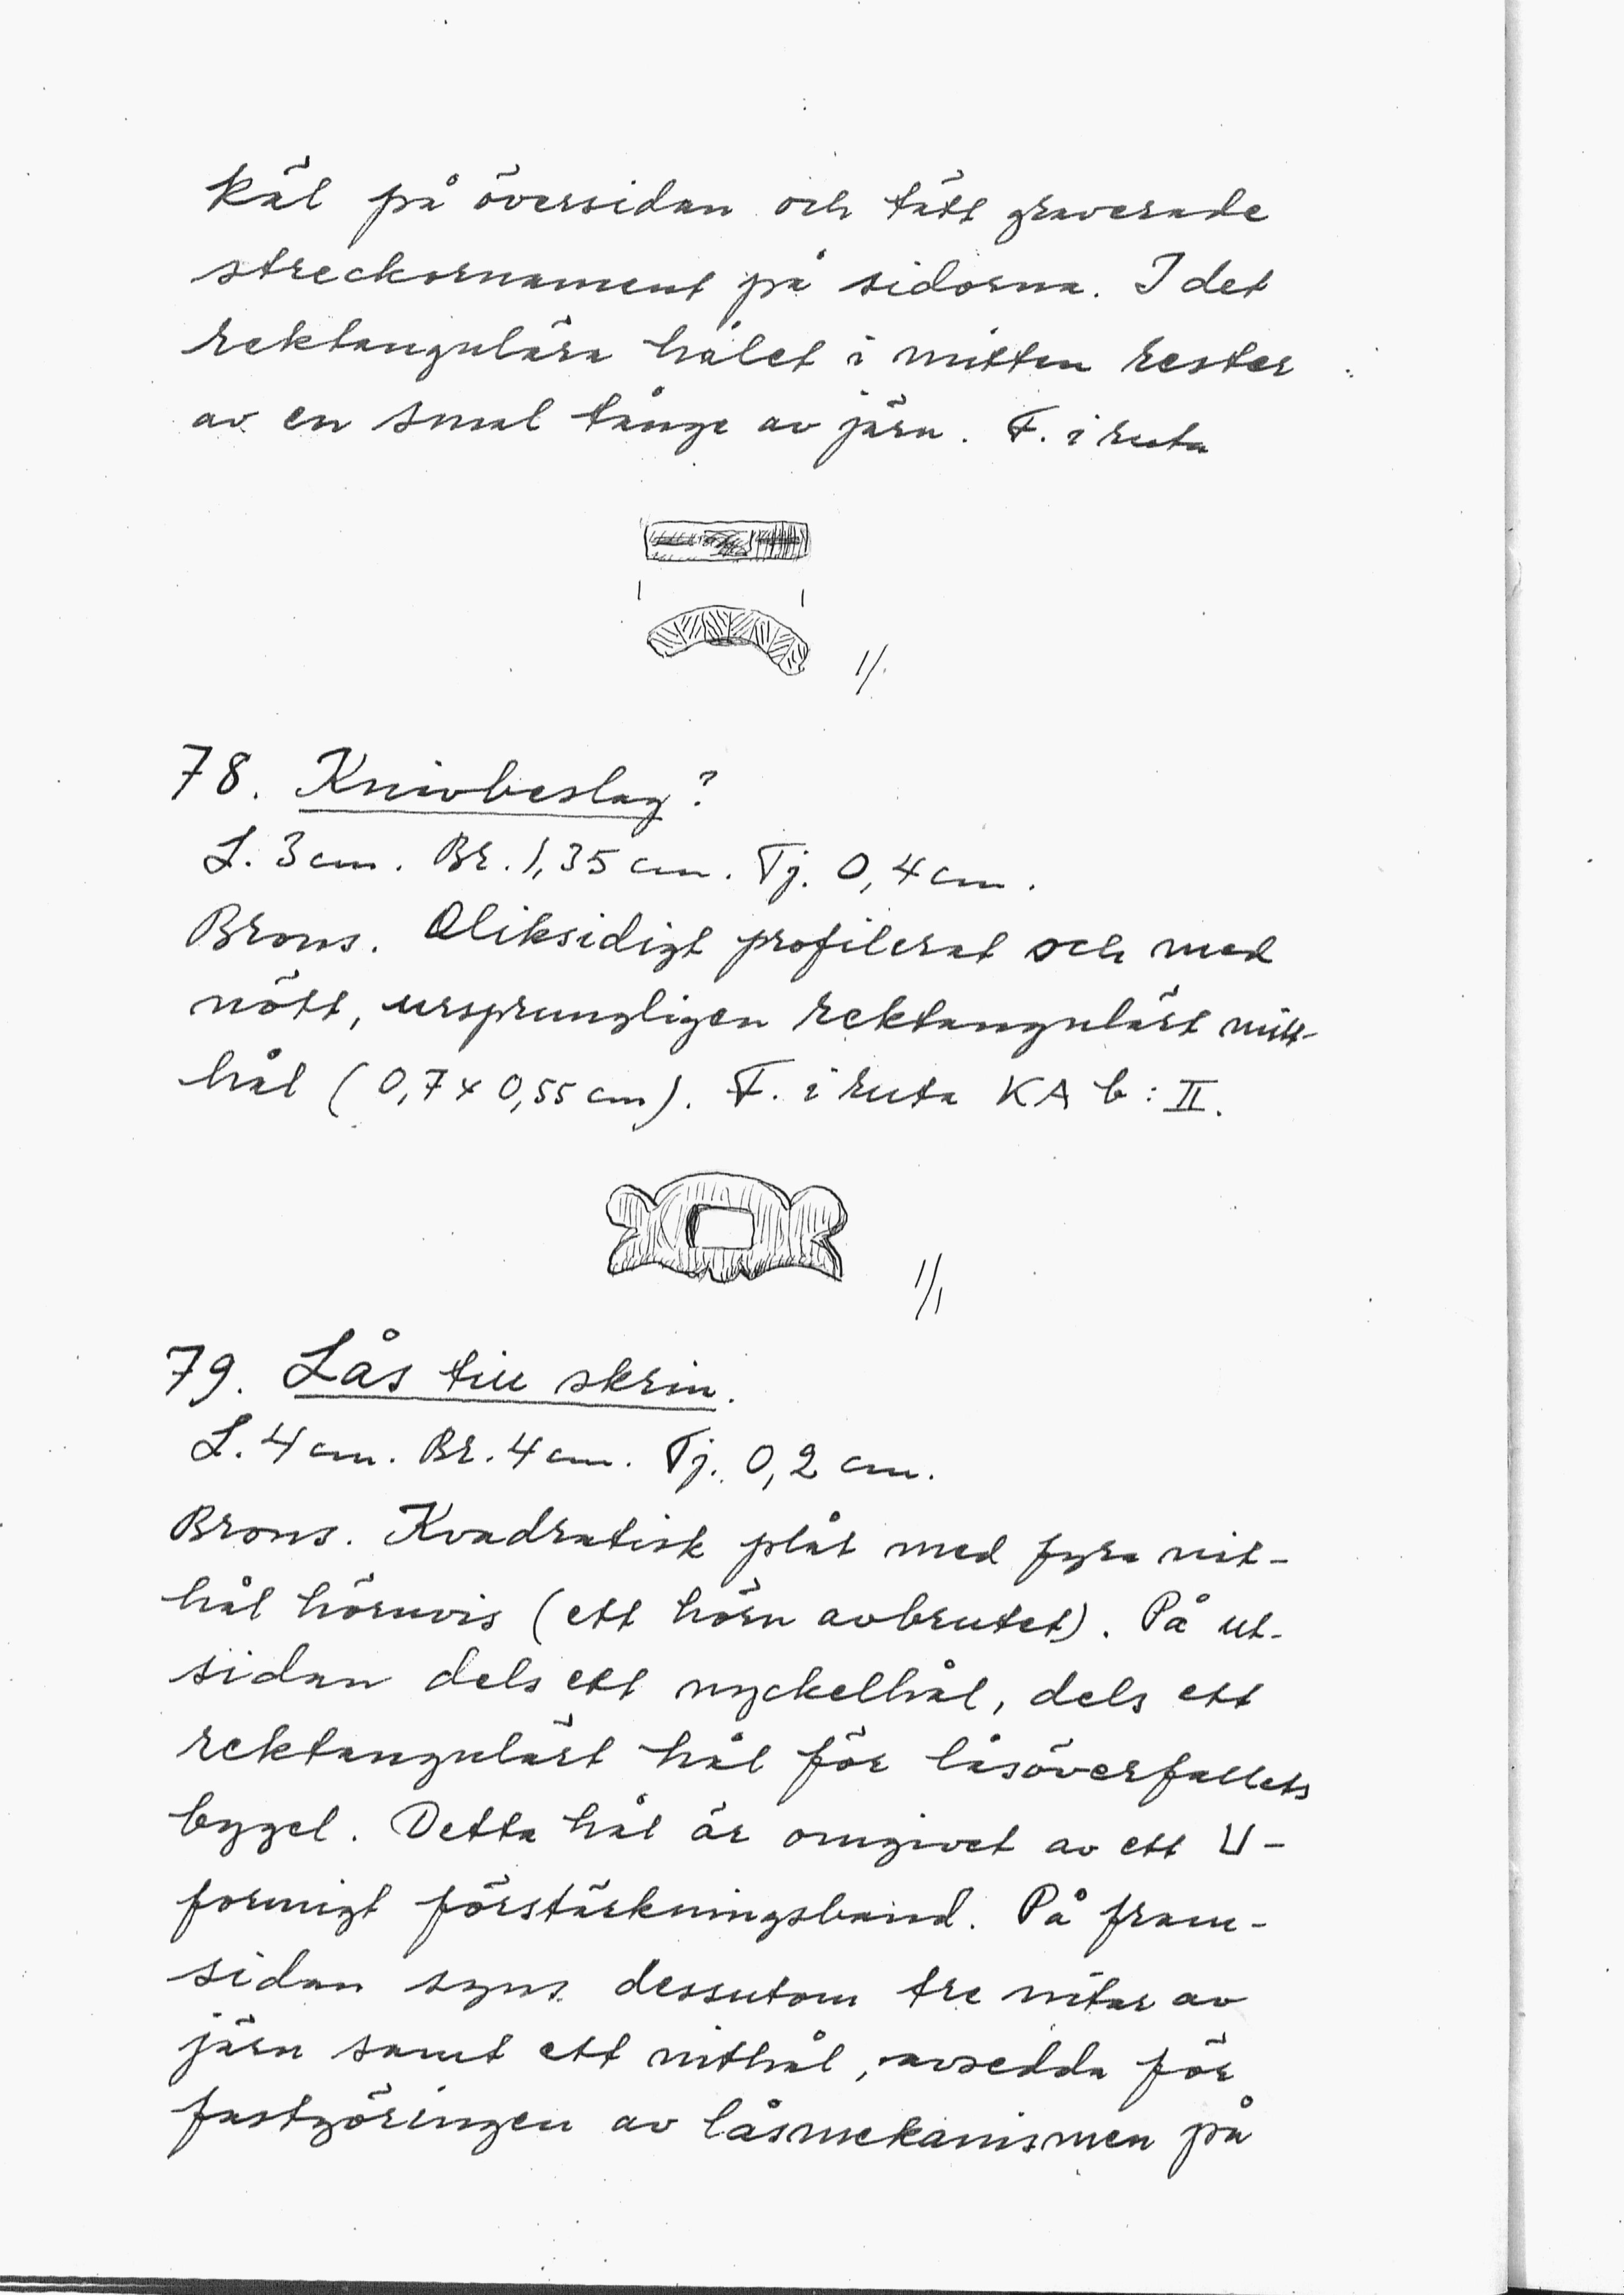 käl på översidan och tätt graverade
streckornament på sidorna. I det
rektangulära hålet i mitten rester
av en smal tånge av järn. F. i ruta
1/
78. Knivbeslag?
L. 3 cm. Br. 1,35 cm. Tj. 0,4 cm.
Brons. Oliksidigt profilerat och med
nött, ursprungligen rektangulärt mitt-
hål (0,7 x 0,55 cm). F. i ruta KA b: II.
1/1
79. Lås till skrin.
L. 4 cm. Br. 4 cm. Tj. 0,2 cm.
Brons. Kvadratisk plåt med fyra nit-
hål hörnvis (ett hörn avbrutet). På ut-
sidan dels ett nyckelhål, dels ett
rektangulärt hål för låsöverfallets
bygel. Detta hål är omgivet av ett U-
formigt förstärkningsband. På fram-
sidan syns dessutom tre nitar av
järn samt ett nithål, avsedda för
fastgöringen av låsmekanismen på